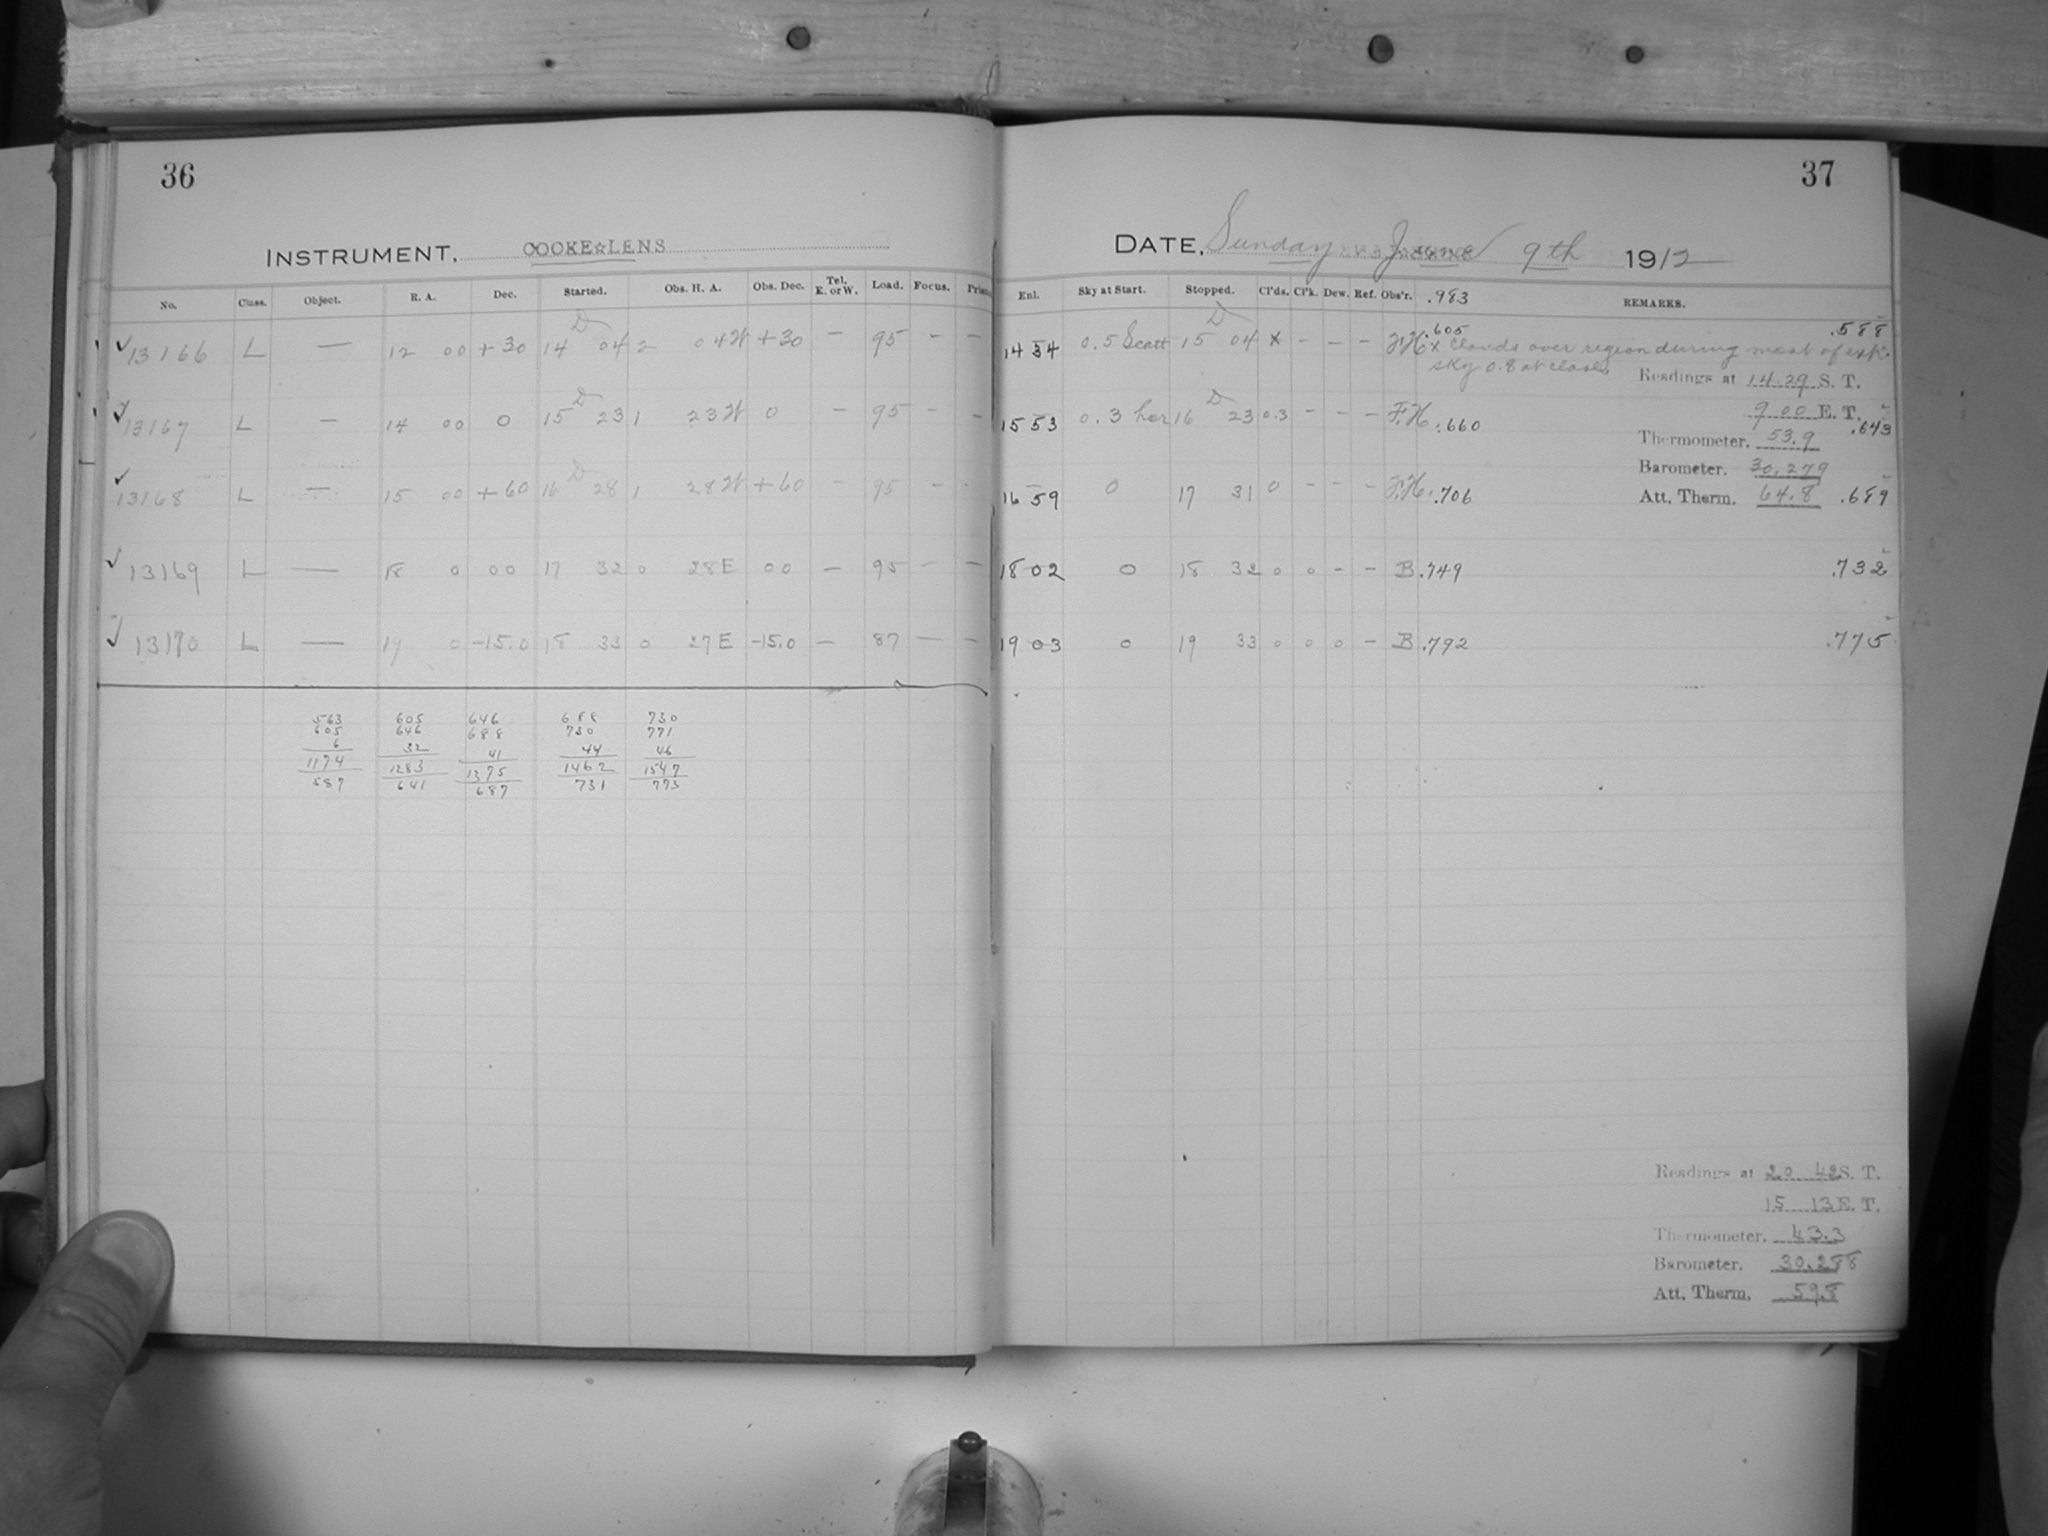 36
INSTRUMENT, COOKE☆LENS
No. Class. Object. R. A. Dec. Started. Obs. H. A. Obs. Dec. Tel. E. or W. Load. Focus. Prism
✓13166 L — 12 00 +30 14 D 04 2 04W +30 — 95 — —
✓13167 L — 14 00 0 15 D 23 1 23W 0 — 95 — —
✓13168 L — 15 00 +60 16 D 28 1 28W +60 — 95 — —
✓13169 L — 18 0 00 17 32 0 28E 00 — 95 — —
✓13170 L — 19 0 -15.0 18 33 0 27E -15.0 — 87 — —
563 605 646 688 730
605 646 688 730 771
6 32 41 44 46
1174 1283 1375 1462 1547
587 641 687 731 773
37
DATE, Sunday June 9th 1912
Enl. Sky at Start. Stopped. Cl'ds. Cl'k. Dew. Ref. Obs'r. .983 REMARKS.
14 34 0.5 Scatt 15 D 04 x - - - F.H. .605 .588
x Clouds over region during most of exp.
sky 0.8 at close.
Readings at 14.29 S. T.
9 00 E. T.
15 53 0.3 hor 16 D 23 0.3 - - - F.H. .660 .643
Thermometer. 53.9
Barometer. 30.279
16 59 0 17 31 0 - - - F.H. .706 Att. Therm. 64.8 .689
18 02 0 18 32 0 0 - - B .749 .732
19 03 0 19 33 0 0 0 - B .792 .775
Readings at 20 42 S. T.
15 13 E. T.
Thermometer. 43.3
Barometer. 30.288
Att. Therm. 59.8